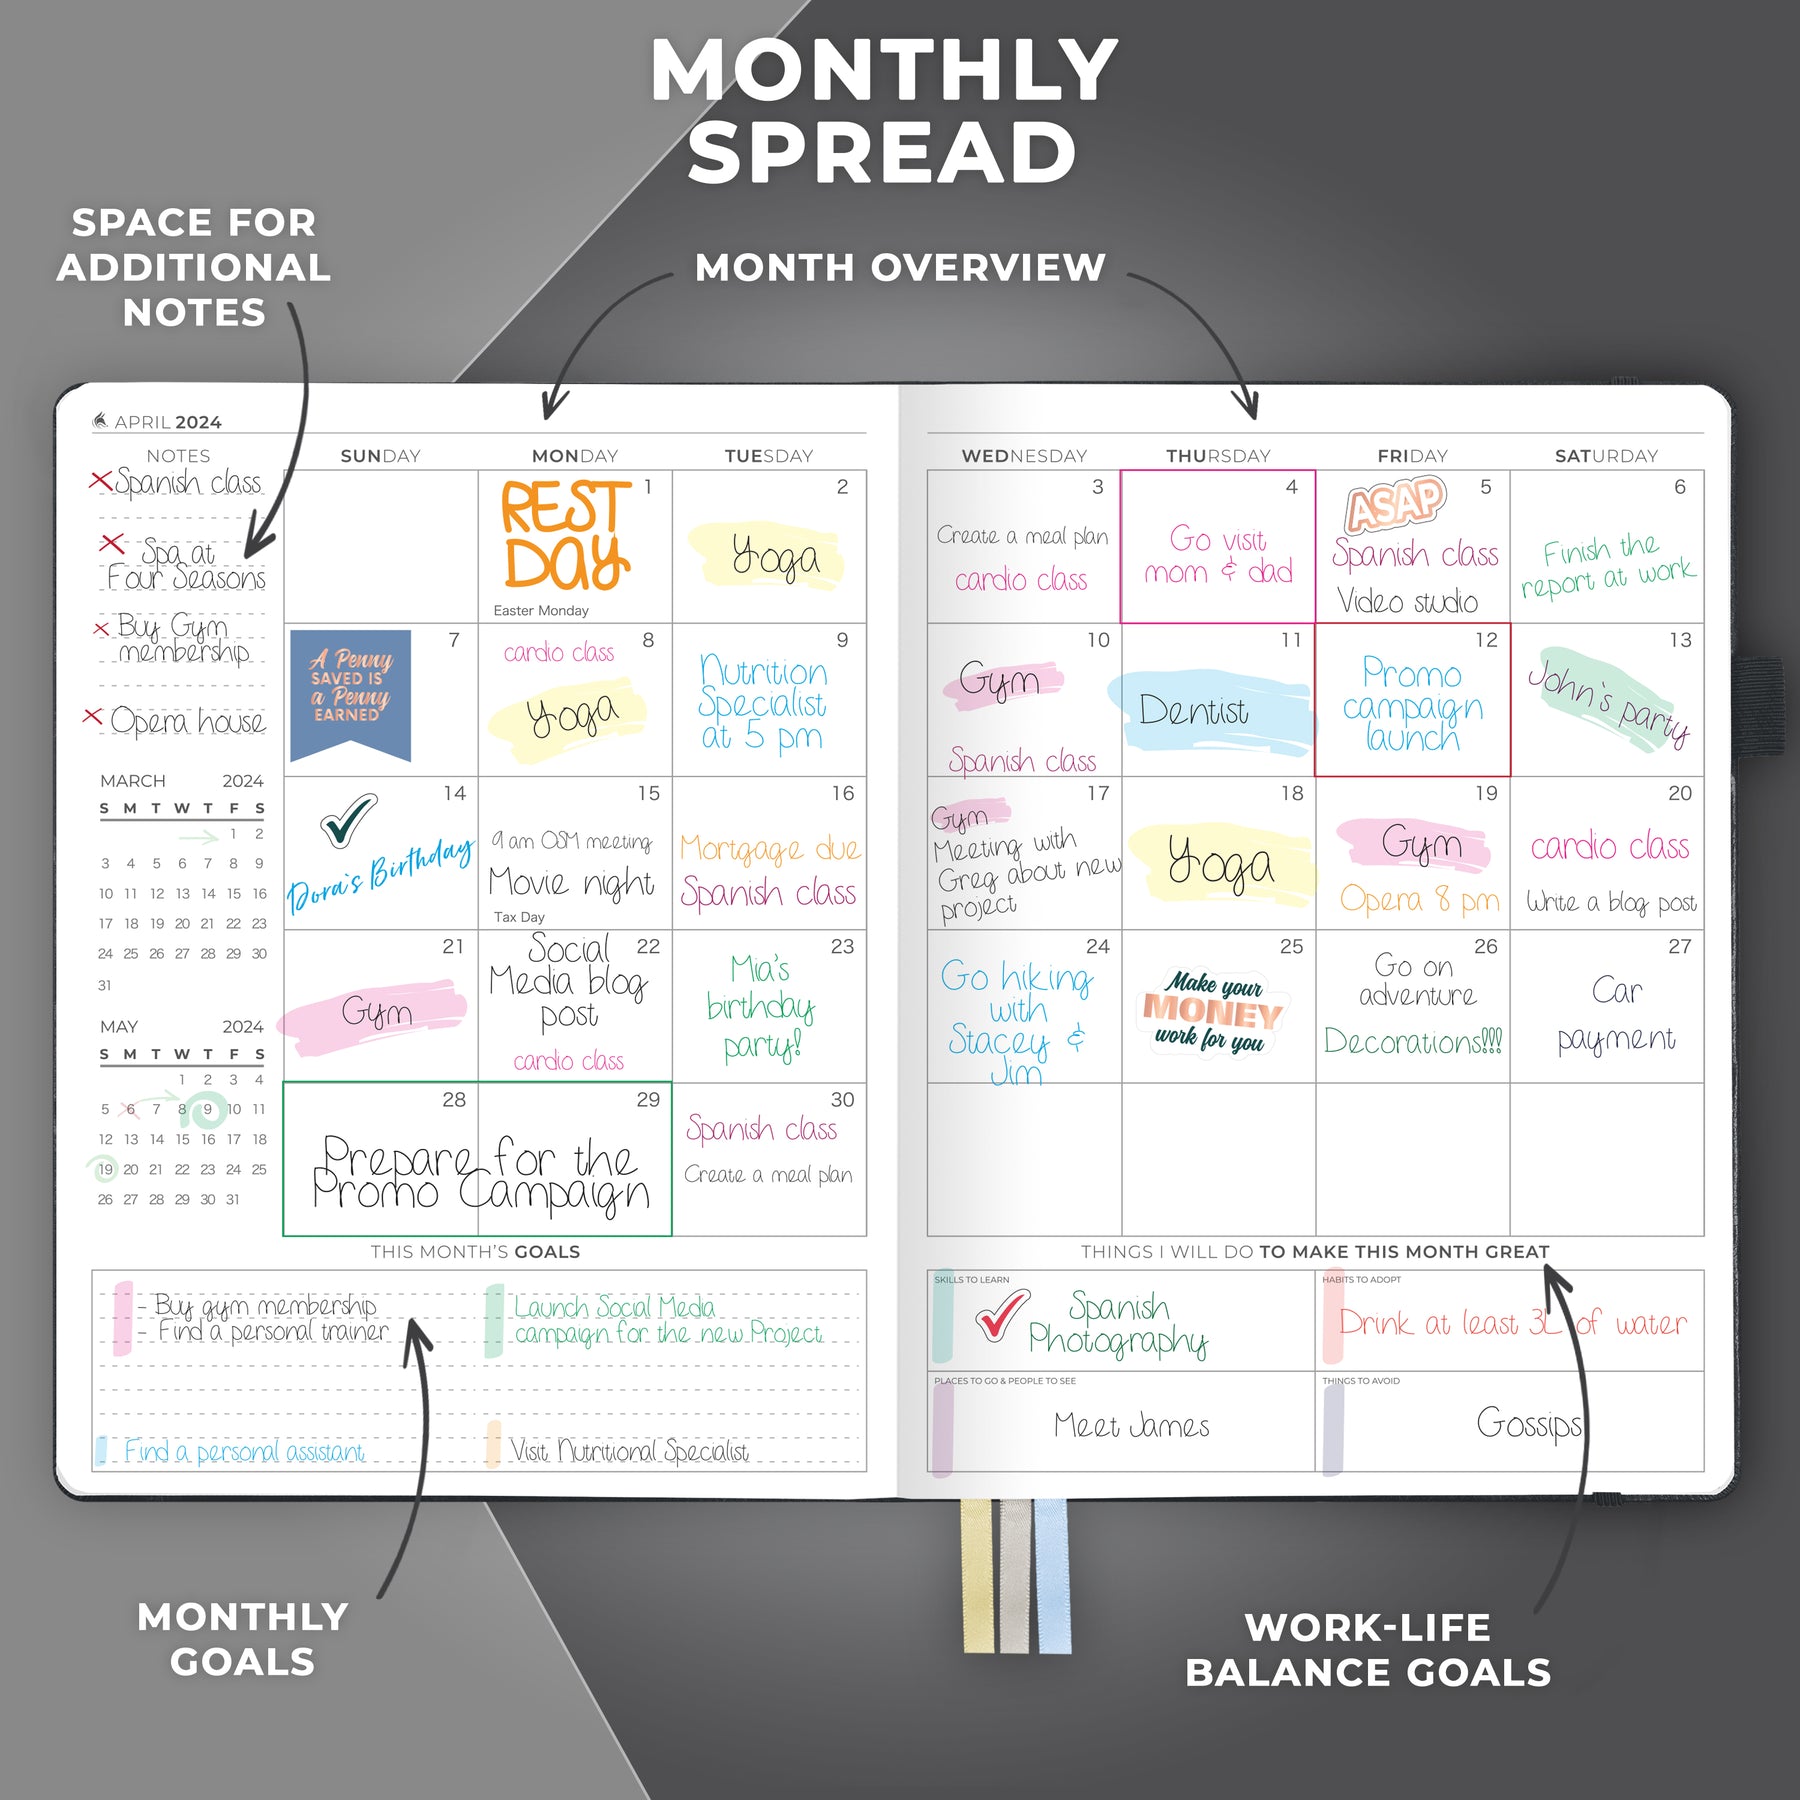 MONTHLY
SPREAD
SPACE FOR
ADDITIONAL
NOTES
MONTH OVERVIEW
APRIL 2024
NOTES
Spanish class
Spa at
Four Seasons
Buy Gym
membership
Opera house
MARCH 2024
S M T W T F S
1 2
3 4 5 6 7 8 9
10 11 12 13 14 15 16
17 18 19 20 21 22 23
24 25 26 27 28 29 30
31
MAY 2024
S M T W T F S
1 2 3 4
5 6 7 8 9 10 11
12 13 14 15 16 17 18
19 20 21 22 23 24 25
26 27 28 29 30 31
SUNDAY MONDAY TUESDAY
1
REST
DAY
Easter Monday
2
Yoga
7
A Penny
SAVED IS
a Penny
EARNED
8
cardio class
Yoga
9
Nutrition
Specialist
at 5 pm
14
Dora's Birthday
15
9 am OSM meeting
Movie night
Tax Day
16
Mortgage due
Spanish class
21
Gym
22
Social
Media blog
post
cardio class
23
Mia's
birthday
party!
28 29
Prepare for the
Promo Campaign
30
Spanish class
Create a meal plan
THIS MONTH'S GOALS
- Buy gym membership
- Find a personal trainer
Launch Social Media
campaign for the new Project
Find a personal assistant
Visit Nutritional Specialist
WEDNESDAY THURSDAY FRIDAY SATURDAY
3
Create a meal plan
cardio class
4
Go visit
mom & dad
5
ASAP
Spanish class
Video studio
6
Finish the
report at work
10
Gym
Spanish class
11
Dentist
12
Promo
campaign
launch
13
John's party
17
Gym
Meeting with
Greg about new
project
18
Yoga
19
Gym
Opera 8 pm
20
cardio class
Write a blog post
24
Go hiking
with
Stacey &
Jim
25
Make your
MONEY
work for you
26
Go on
adventure
Decorations!!!
27
Car
payment
THINGS I WILL DO TO MAKE THIS MONTH GREAT
SKILLS TO LEARN
Spanish
Photography
HABITS TO ADOPT
Drink at least 3L of water
PLACES TO GO & PEOPLE TO SEE
Meet James
THINGS TO AVOID
Gossips
MONTHLY
GOALS
WORK-LIFE
BALANCE GOALS